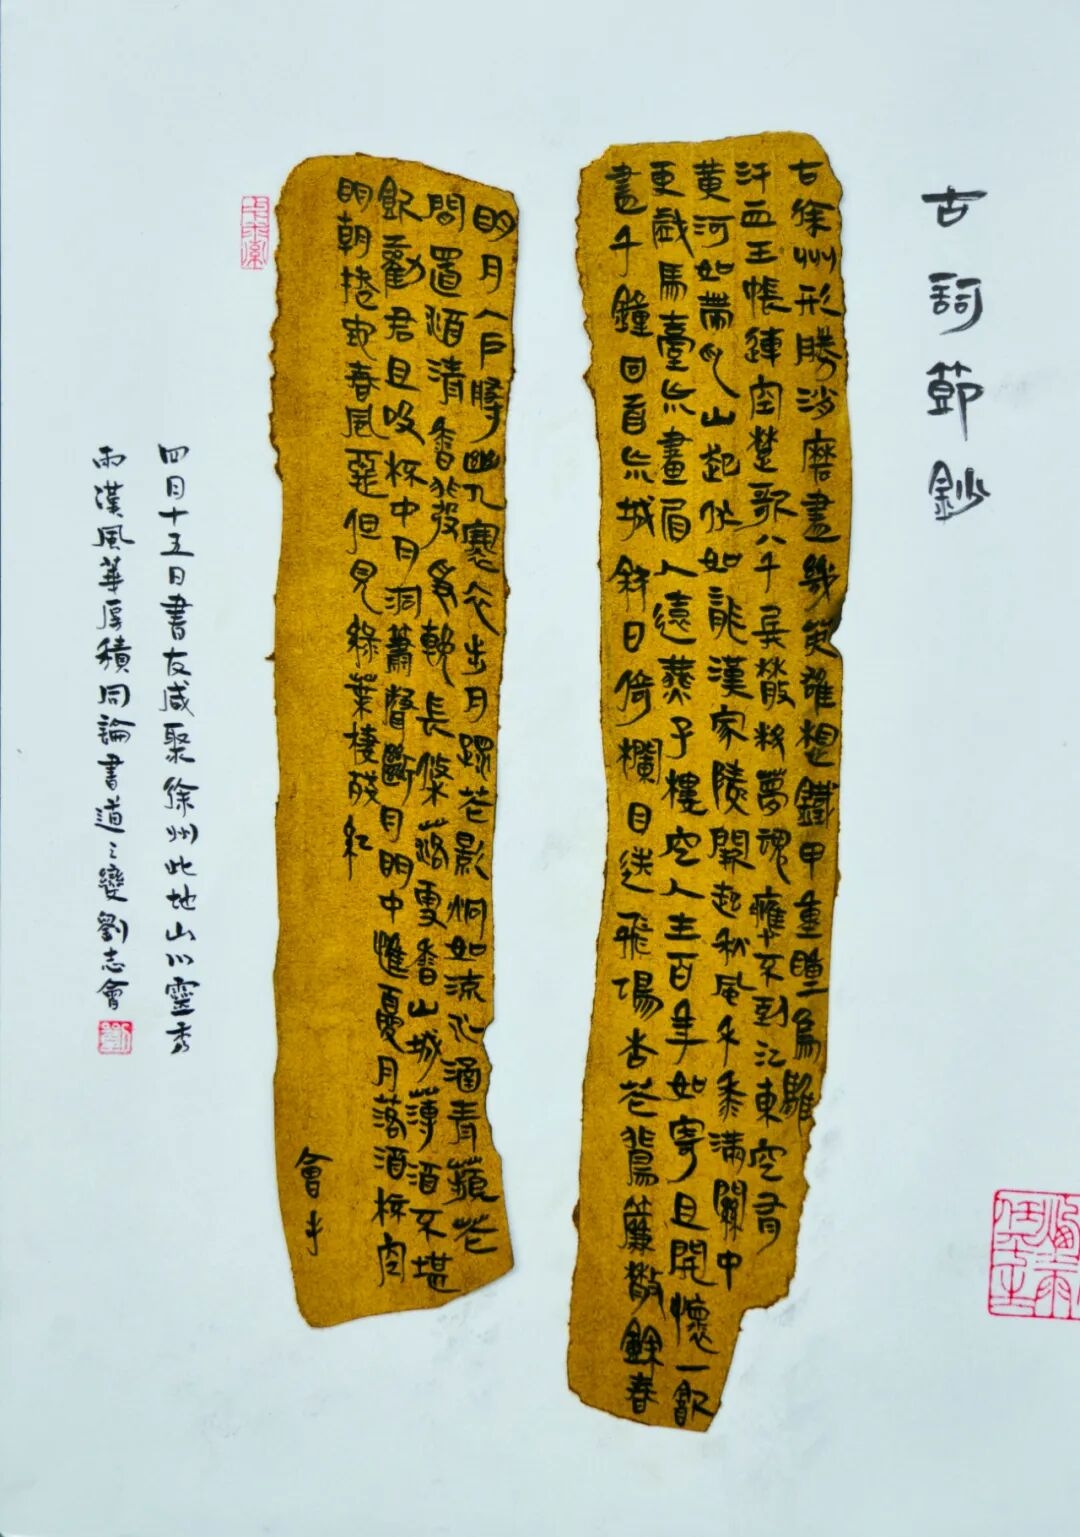 古詞節鈔
古徐州形勝消磨盡幾英雄想鐵甲重瞳烏騅
汗血玉帳連空楚歌八千兵散料夢魂應不到江東空有
黄河如帶乱山起伏如龍漢家陵闕起秋風禾黍滿關中
更戲馬臺荒畫眉人遠燕子樓空人生百年如寄且開懷一飲
盡千鐘回首荒城斜日倚欄目送飛鴻杏花飛簾散餘春
明月入戶尋幽人褰衣步月踏花影炯如流水涵青蘋花
間置酒清香發爭挽長條落雪香山城薄酒不堪
飲勸君且吸杯中月洞簫聲斷月明中惟憂月落酒杯空
明朝捲地春風惡但見綠葉棲殘紅
會
四月十五日書友咸聚徐州此地山川靈秀
兩漢風華厚積同論書道之變劉志會
劉